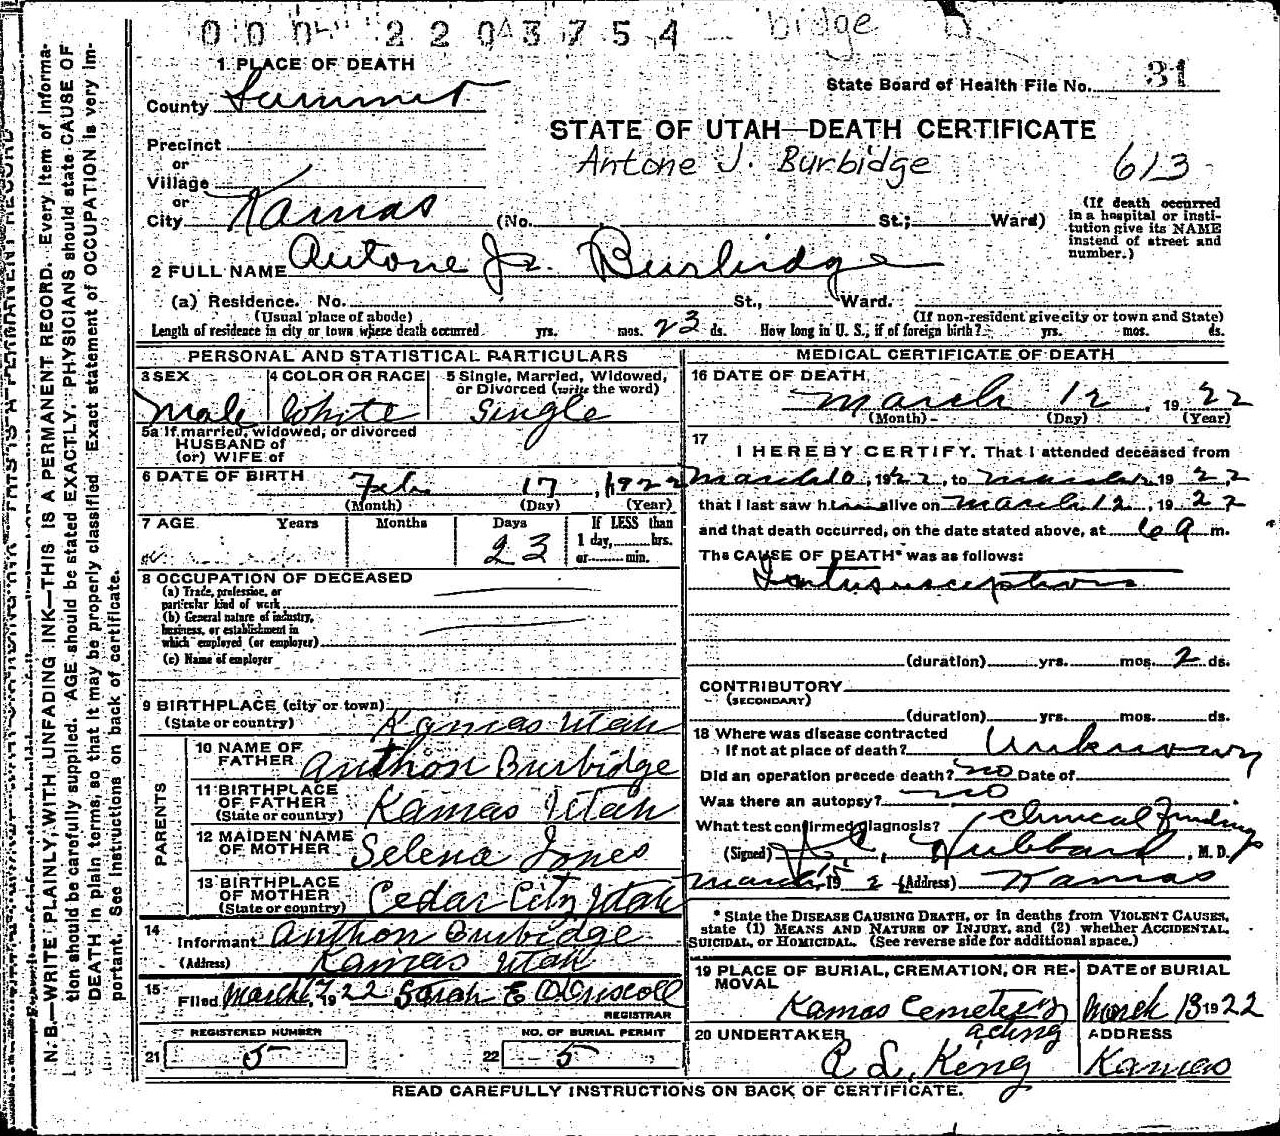 0 0 0 2 2 0 3 7 5 4 bidge
State Board of Health File No. 31
1 PLACE OF DEATH
County Summit
STATE OF UTAH—DEATH CERTIFICATE
Antone J. Burbidge 613
Precinct
or
Village
or
City Kamas (No. St.; Ward)
(If death occurred in a hospital or institution give its NAME instead of street and number.)
2 FULL NAME Antone Jr. Burbidge
(a) Residence. No. St., Ward.
(Usual place of abode) (If non-resident give city or town and State)
Length of residence in city or town where death occurred yrs. mos. 23 ds. How long in U. S., if of foreign birth? yrs. mos. ds.
PERSONAL AND STATISTICAL PARTICULARS
3 SEX Male
4 COLOR OR RACE White
5 Single, Married, Widowed, or Divorced (write the word) Single
5a If married, widowed, or divorced
HUSBAND of
(or) WIFE of
6 DATE OF BIRTH Feb 17, 1922
(Month) (Day) (Year)
7 AGE Years Months Days 23
If LESS than
1 day, hrs.
or min.
8 OCCUPATION OF DECEASED
(a) Trade, profession, or
particular kind of work
(b) General nature of industry,
business, or establishment in
which employed (or employer)
(c) Name of employer
9 BIRTHPLACE (city or town)
(State or country) Kamas Utah
PARENTS
10 NAME OF
FATHER Anthon Burbidge
11 BIRTHPLACE
OF FATHER
(State or country) Kamas Utah
12 MAIDEN NAME
OF MOTHER Selena Jones
13 BIRTHPLACE
OF MOTHER
(State or country) Cedar City Utah
14
Informant Anthon Burbidge
(Address) Kamas Utah
15
Filed March 1922 Sarah E O'Driscoll
REGISTRAR
REGISTERED NUMBER
21 5
NO. OF BURIAL PERMIT
22 5
MEDICAL CERTIFICATE OF DEATH
16 DATE OF DEATH
March 12, 1922
(Month) (Day) (Year)
17
I HEREBY CERTIFY, That I attended deceased from
March 10, 1922, to March 12 1922
that I last saw him alive on March 12, 1922
and that death occurred, on the date stated above, at 6 a m.
The CAUSE OF DEATH* was as follows:
Intussusception
(duration) yrs. mos. 2 ds.
CONTRIBUTORY
(SECONDARY)
(duration) yrs. mos. ds.
18 Where was disease contracted
If not at place of death? Unknown
Did an operation precede death? no Date of
Was there an autopsy? no
What test confirmed diagnosis? Clinical Findings
(Signed) Hubbard, M. D.
March (Address) Kamas
* State the DISEASE CAUSING DEATH, or in deaths from VIOLENT CAUSES,
state (1) MEANS AND NATURE OF INJURY, and (2) whether ACCIDENTAL,
SUICIDAL, or HOMICIDAL. (See reverse side for additional space.)
19 PLACE OF BURIAL, CREMATION, OR REMOVAL
Kamas Cemetery
DATE of BURIAL
March 13 1922
20 UNDERTAKER acting
R L. King
ADDRESS
Kamas
READ CAREFULLY INSTRUCTIONS ON BACK OF CERTIFICATE.
N. B.—WRITE PLAINLY, WITH UNFADING INK—THIS IS A PERMANENT RECORD. Every item of information should be carefully supplied. AGE should be stated EXACTLY. PHYSICIANS should state CAUSE OF
DEATH in plain terms, so that it may be properly classified. Exact statement of OCCUPATION is very important. See instructions on back of certificate.